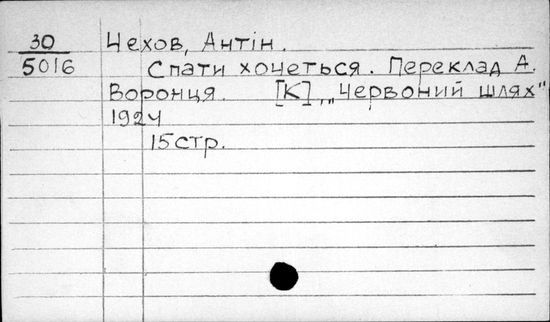 30
5016
Чехов, Антін.
Спати хочеться. Переклад А.
Воронця. [К], „Червоний шлях"
1924
15стр.